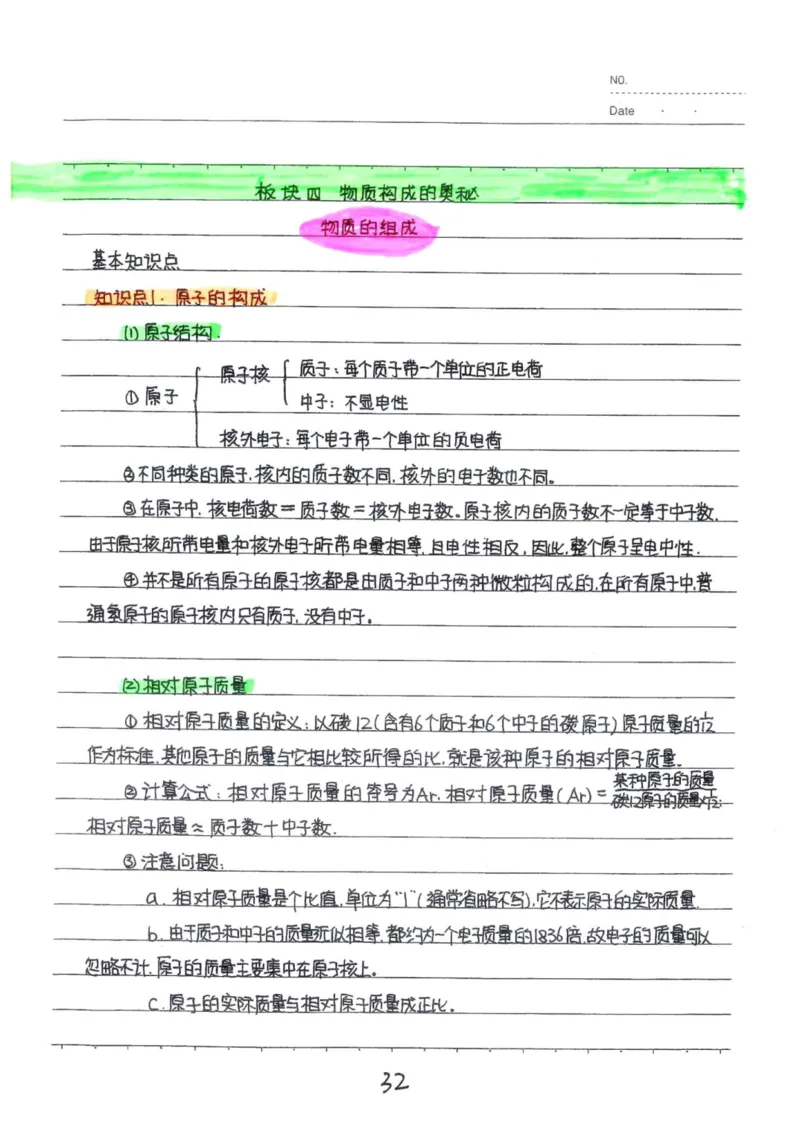 NO.
Date
板块四 物质构成的奥秘
物质的组成
基本知识点
知识点1. 原子的构成
(1)原子结构.
原子核 质子:每个质子带一个单位的正电荷
①原子 中子:不显电性
核外电子:每个电子带一个单位的负电荷
②不同种类的原子,核内的质子数不同,核外的电子数也不同。
③在原子中,核电荷数=质子数=核外电子数。原子核内的质子数不一定等于中子数,
由于原子核所带电量和核外电子所带电量相等,且电性相反,因此,整个原子呈电中性.
④并不是所有原子的原子核都是由质子和中子两种微粒构成的,在所有原子中,普
通氢原子的原子核内只有质子,没有中子。
(2)相对原子质量
①相对原子质量的定义:以碳12(含有6个质子和6个中子的碳原子)原子质量的
作为标准,其他原子的质量与它相比较所得的比,就是该种原子的相对原子质量。
②计算公式:相对原子质量的符号为Ar.相对原子质量(Ar)=某种原子的质量/碳12原子的质量×1/12;
相对原子质量≈质子数+中子数.
③注意问题:
a. 相对原子质量是个比值,单位为"1"(通常省略不写),它不表示原子的实际质量.
b.由于质子和中子的质量近似相等,都约为一个电子质量的1836倍,故电子的质量可以
忽略不计,原子的质量主要集中在原子核上。
c.原子的实际质量与相对原子质量成正比。
32